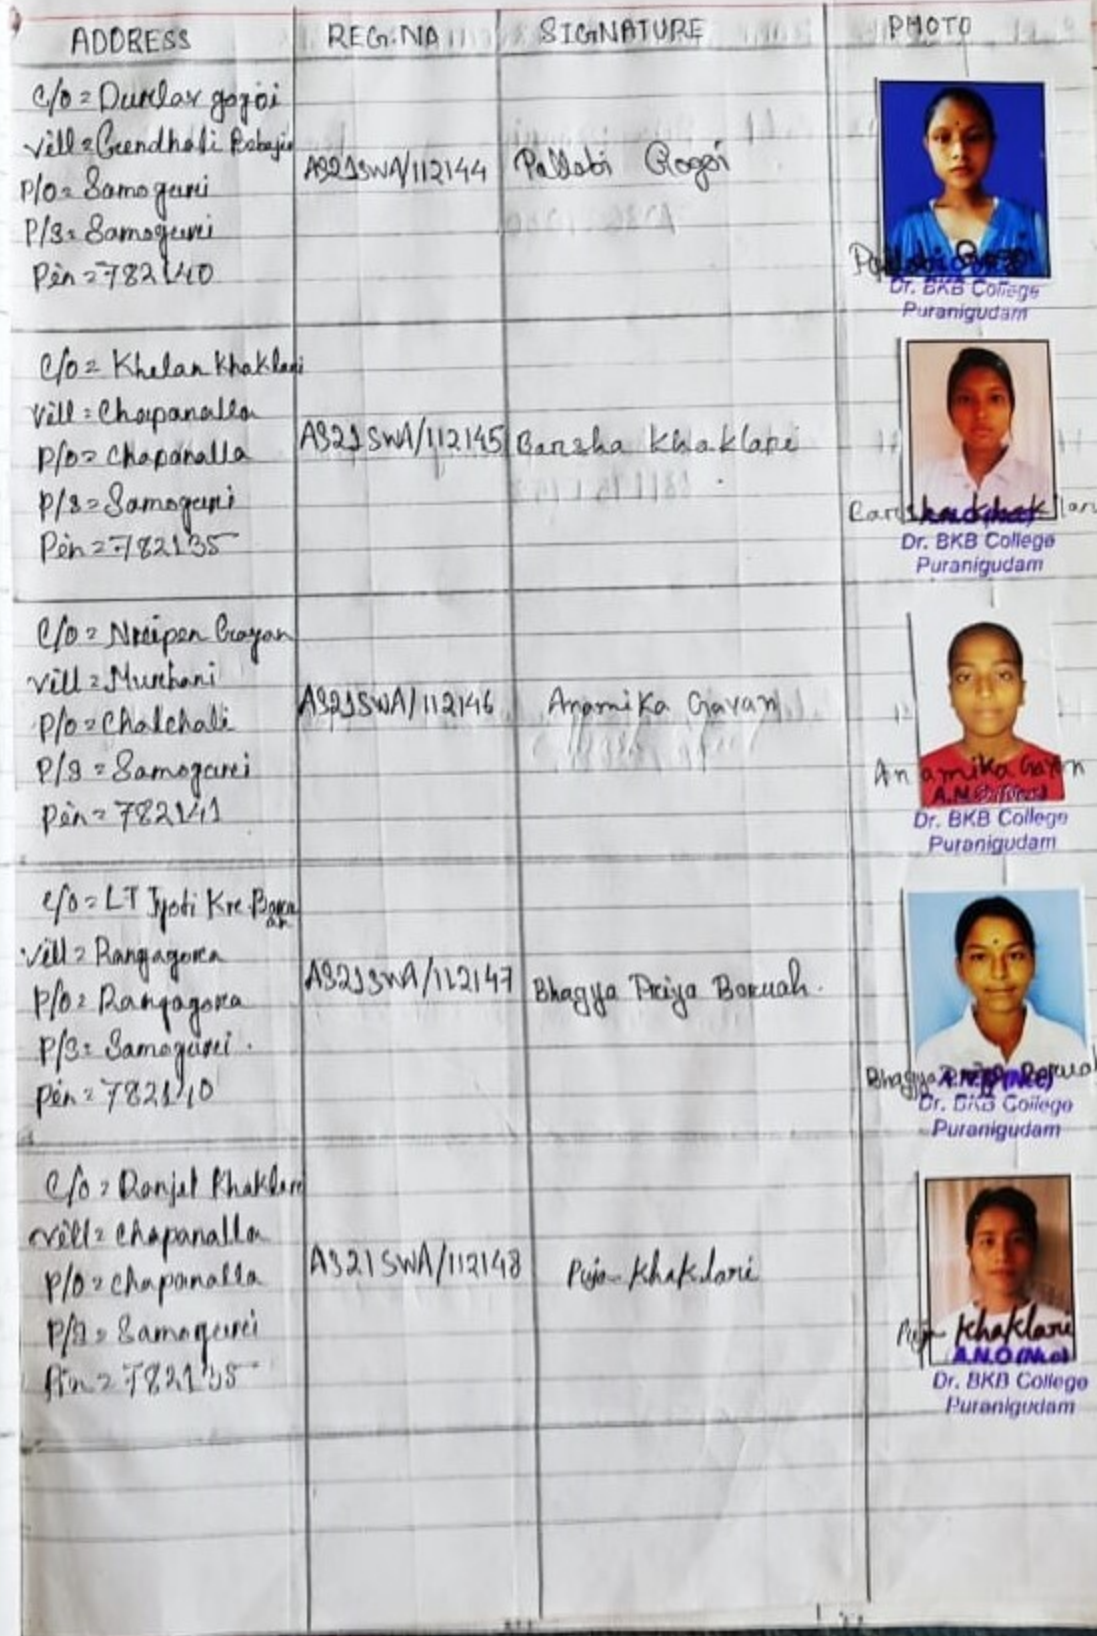 ADDRESS REG:NA SIGNATURE PHOTO
C/O = Durlav gogoi
Vill =
P/O = Samoguri
P/S = Samoguri
Pin = 782140
AS21SWA/112144
Pallabi Gogoi
Pallabi Gogoi
Dr. BKB College
Puranigudam
C/O = Khelan Khaklari
Vill = Chapanalla
P/O = Chapanalla
P/S = Samoguri
Pin = 782135
AS21SWA/112145
Barsha Khaklari
Barsha Khaklari
Dr. BKB College
Puranigudam
C/O = Nripen Gayan
Vill = Murhani
P/O = Chalchali
P/S = Samoguri
Pin = 782141
AS21SWA/112146
Anamika Gayan
Anamika Gayan
Dr. BKB College
Puranigudam
C/O = LT Jyoti Kr
Vill = Rangagora
P/O = Rangagora
P/S = Samoguri.
Pin = 782140
AS21SWA/112147
Bhagya Priya Boruah.
Bhagya Priya Boruah
A.N.O (Ncc)
Dr. BKB College
Puranigudam
C/O = Ranjit Khaklari
Vill = Chapanalla
P/O = Chapanalla
P/S = Samoguri
Pin = 782135
AS21SWA/112148
Puja Khaklari
Puja Khaklari
A.N.O (Ncc)
Dr. BKB College
Puranigudam